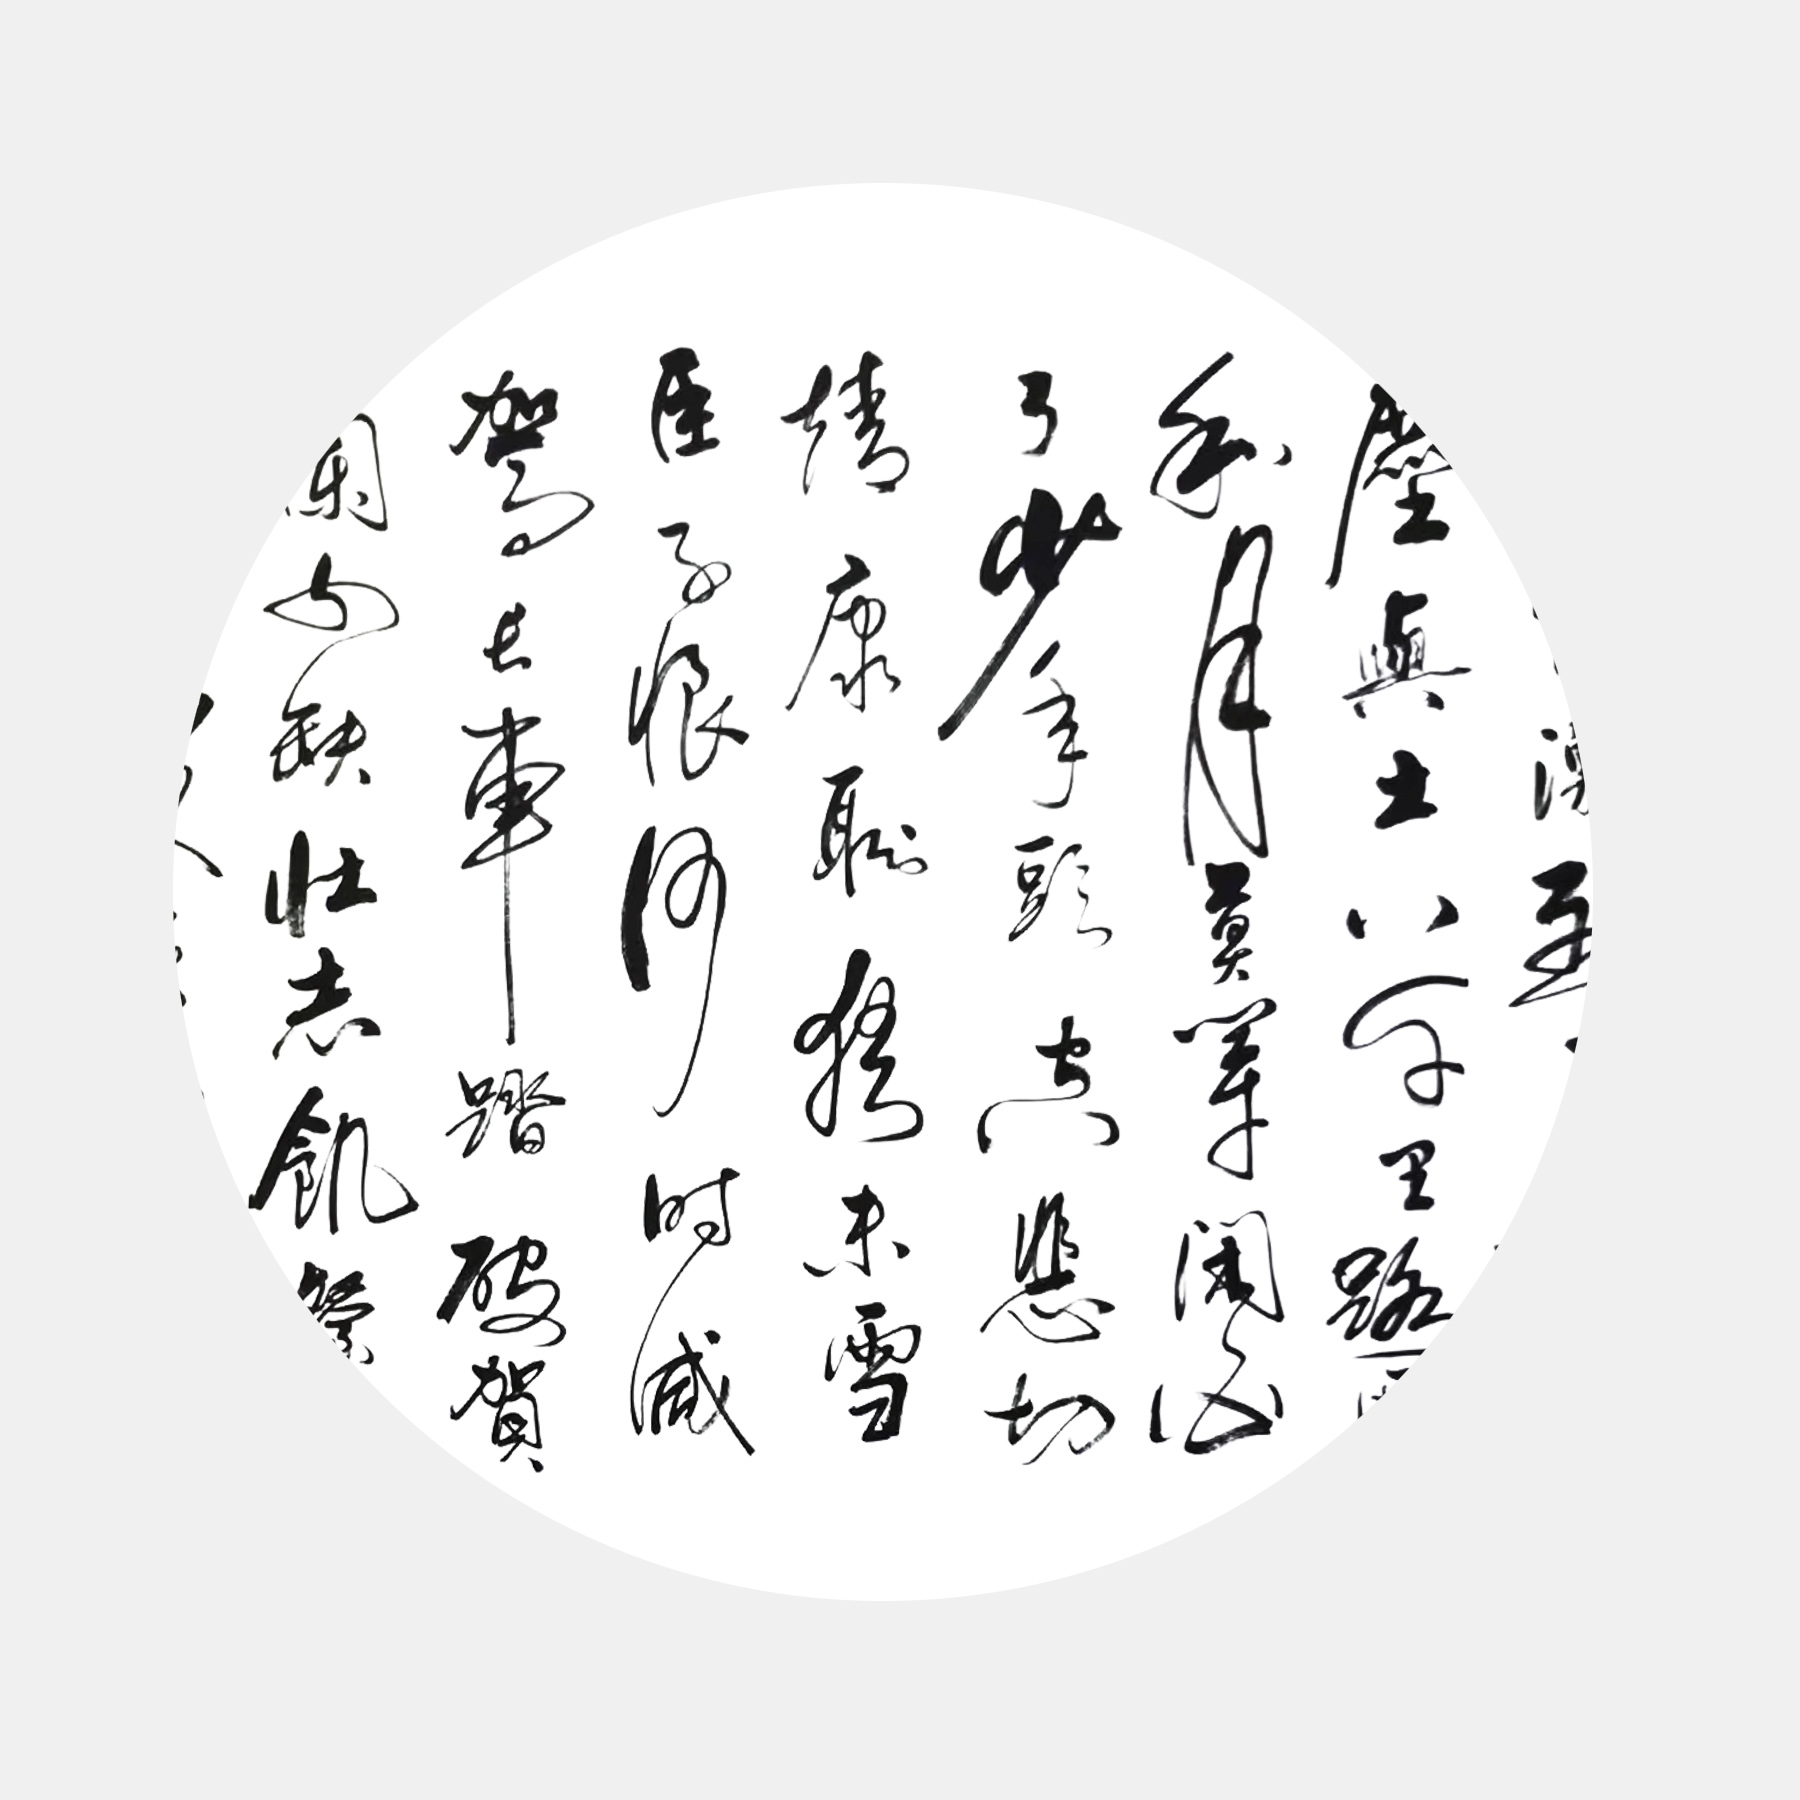 塵與土八千里路
和月莫等閑白
了少年頭空悲切
靖康恥猶未雪
臣子恨何时滅
駕長車踏破賀
闌山缺壯志飢餐